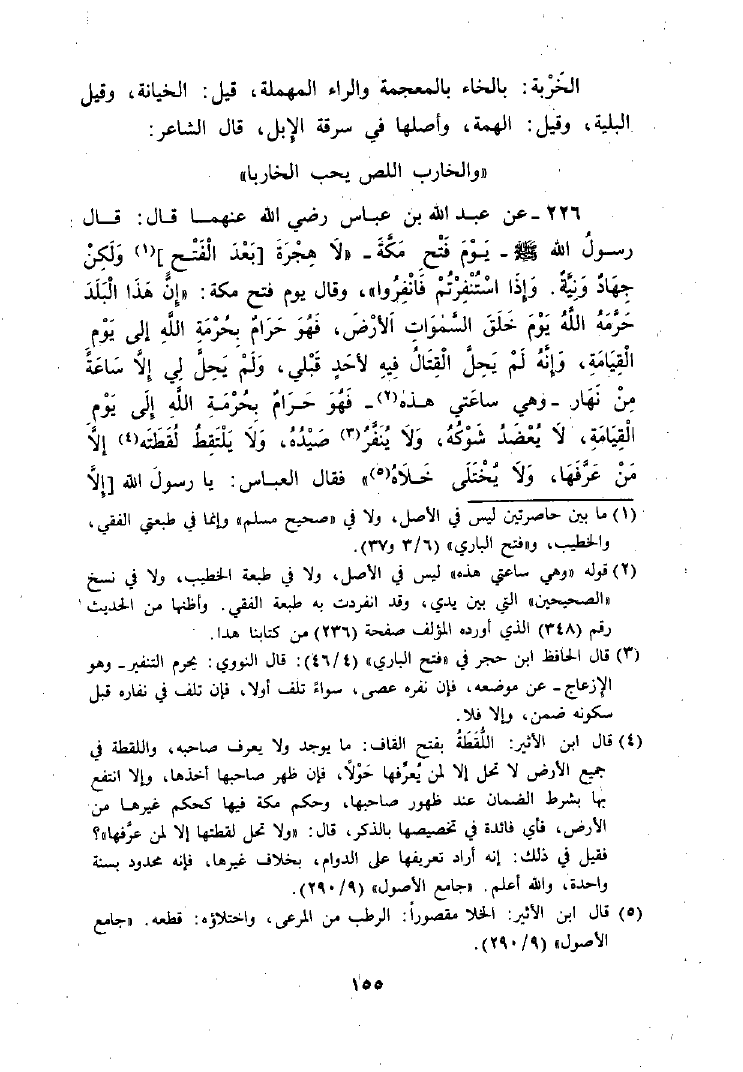 الخَرْبة: بالخاء بالمعجمة والراء المهملة، قيل: الخيانة، وقيل
البلية، وقيل: الهمة، وأصلها في سرقة الإبل، قال الشاعر:
«والخارب اللص يحب الخاربا»
٢٢٦ ـ عن عبد الله بن عباس رضي الله عنهما قال: قال
رسولُ الله ﷺ ـ يَوْمَ فَتْحِ مَكَّةَ ـ «لَا هِجْرَةَ [بَعْدَ الْفَتْحِ](١) وَلَكِنْ
جِهَادٌ وَنِيَّةٌ. وَإِذَا اسْتُنْفِرْتُمْ فَانْفِرُوا»، وقال يوم فتح مكة: «إِنَّ هَذَا الْبَلَدَ
حَرَّمَهُ اللَّهُ يَوْمَ خَلَقَ السَّمٰوَاتِ الأَرْضَ، فَهُوَ حَرَامٌ بِحُرْمَةِ اللَّهِ إلى يَوْمِ
الْقِيَامَةِ، وَإِنَّهُ لَمْ يَحِلَّ الْقِتَالُ فِيهِ لأَحَدٍ قَبْلي، وَلَمْ يَحِلَّ لِي إِلَّا سَاعَةً
مِنْ نَهَارٍ ـ وهي ساعَتي هذه(٢) ـ فَهُوَ حَرَامٌ بِحُرْمَةِ اللَّهِ إِلَى يَوْمِ
الْقِيَامَةِ، لَا يُعْضَدُ شَوْكُهُ، وَلَا يُنَفَّرُ(٣) صَيْدُهُ، وَلَا يَلْتَقِطُ لُقَطَتَه(٤) إِلَّا
مَنْ عَرَّفَهَا، وَلَا يُخْتَلَى خَلَاهُ(٥)» فقال العباس: يا رسولَ الله [إِلَّا
(١) ما بين حاصرتين ليس في الأصل، ولا في «صحيح مسلم» وإنما في طبعتي الفقي،
والخطيب، و«فتح الباري» (٣/٦ و٣٧).
(٢) قوله «وهي ساعتي هذه» ليس في الأصل، ولا في طبعة الخطيب، ولا في نسخ
«الصحيحين» التي بين يدي، وقد انفردت به طبعة الفقي. وأظنها من الحديث
رقم (٣٤٨) الذي أورده المؤلف صفحة (٢٣٦) من كتابنا هدا.
(٣) قال الحافظ ابن حجر في «فتح الباري» (٤٦/٤): قال النووي: يحرم التنفير ـ وهو
الإزعاج ـ عن موضعه، فإن نفره عصى، سواءً تلف أولا، فإن تلف في نفاره قبل
سكونه ضمن، وإلا فلا.
(٤) قال ابن الأثير: اللُّقَطَةُ بفتح القاف: ما يوجد ولا يعرف صاحبه، واللقطة في
جميع الأرض لا تحل إلا لمن يُعرِّفها حَوْلًا، فإن ظهر صاحبها أخذها، وإلا انتفع
بها بشرط الضمان عند ظهور صاحبها، وحكم مكة فيها كحكم غيرها من
الأرض، فأي فائدة في تخصيصها بالذكر، قال: «ولا تحل لقطتها إلا لمن عرَّفها»؟
فقيل في ذلك: إنه أراد تعريفها على الدوام، بخلاف غيرها، فإنه محدود بسنة
واحدة، والله أعلم. «جامع الأصول» (٢٩٠/٩).
(٥) قال ابن الأثير: الخلا مقصوراً: الرطب من المرعى، واختلاؤه: قطعه. «جامع
الأصول» (٢٩٠/٩).
١٥٥